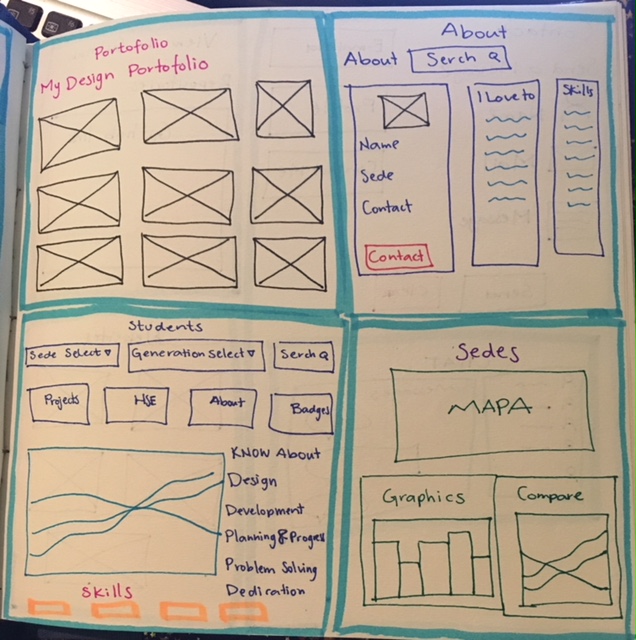 Portofolio
My Design Portofolio
About
About Serch
I Love to
Skills
Name
Sede
Contact
Contact
Students
Sede Select Generation Select Serch
Projects HSE About Badges
KNOW About
Design
Development
Planning & Progess
Problem Solving
Dedication
Skills
Sedes
MAPA
Graphics
Compare